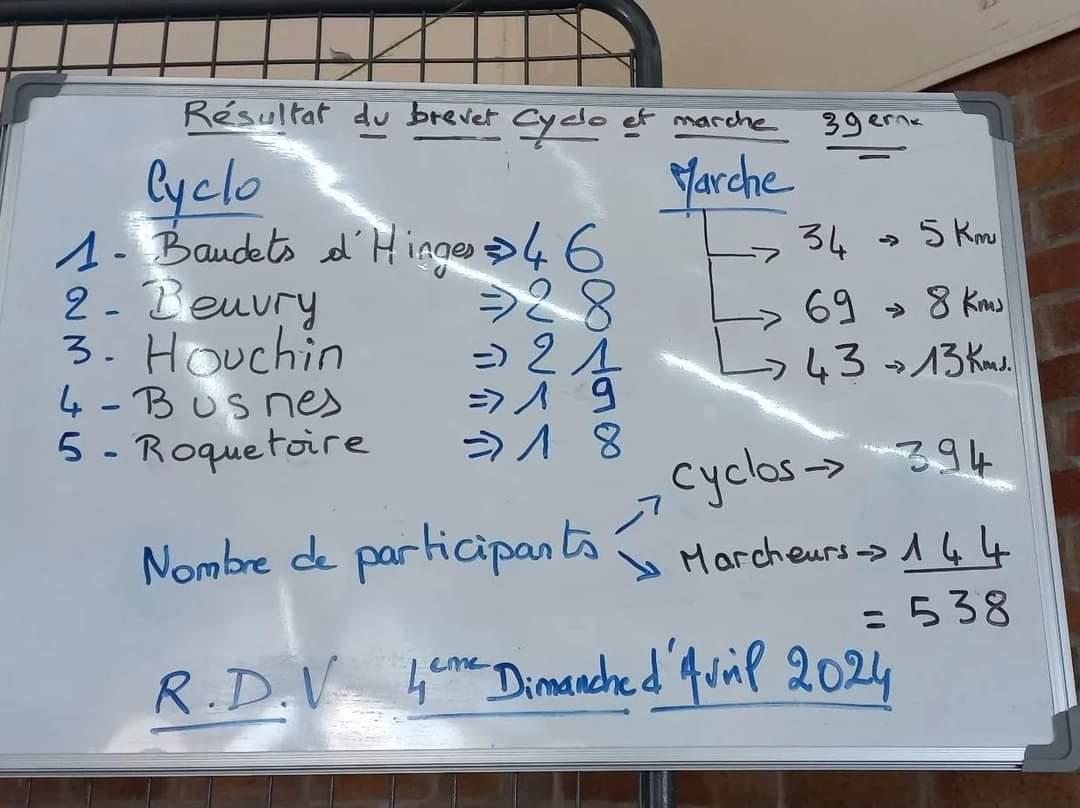 Résultat du brevet Cyclo et marche 39eme
Cyclo
1 - Baudets d'Hinges => 46
2 - Beuvry => 28
3 - Houchin => 21
4 - Busnes => 19
5 - Roquetoire => 18
Marche
→ 34 → 5 Km
→ 69 → 8 Kms
→ 43 → 13 Kms.
Nombre de participants
Cyclos → 394
Marcheurs → 144
= 538
R.D.V 4eme Dimanche d'Avril 2024